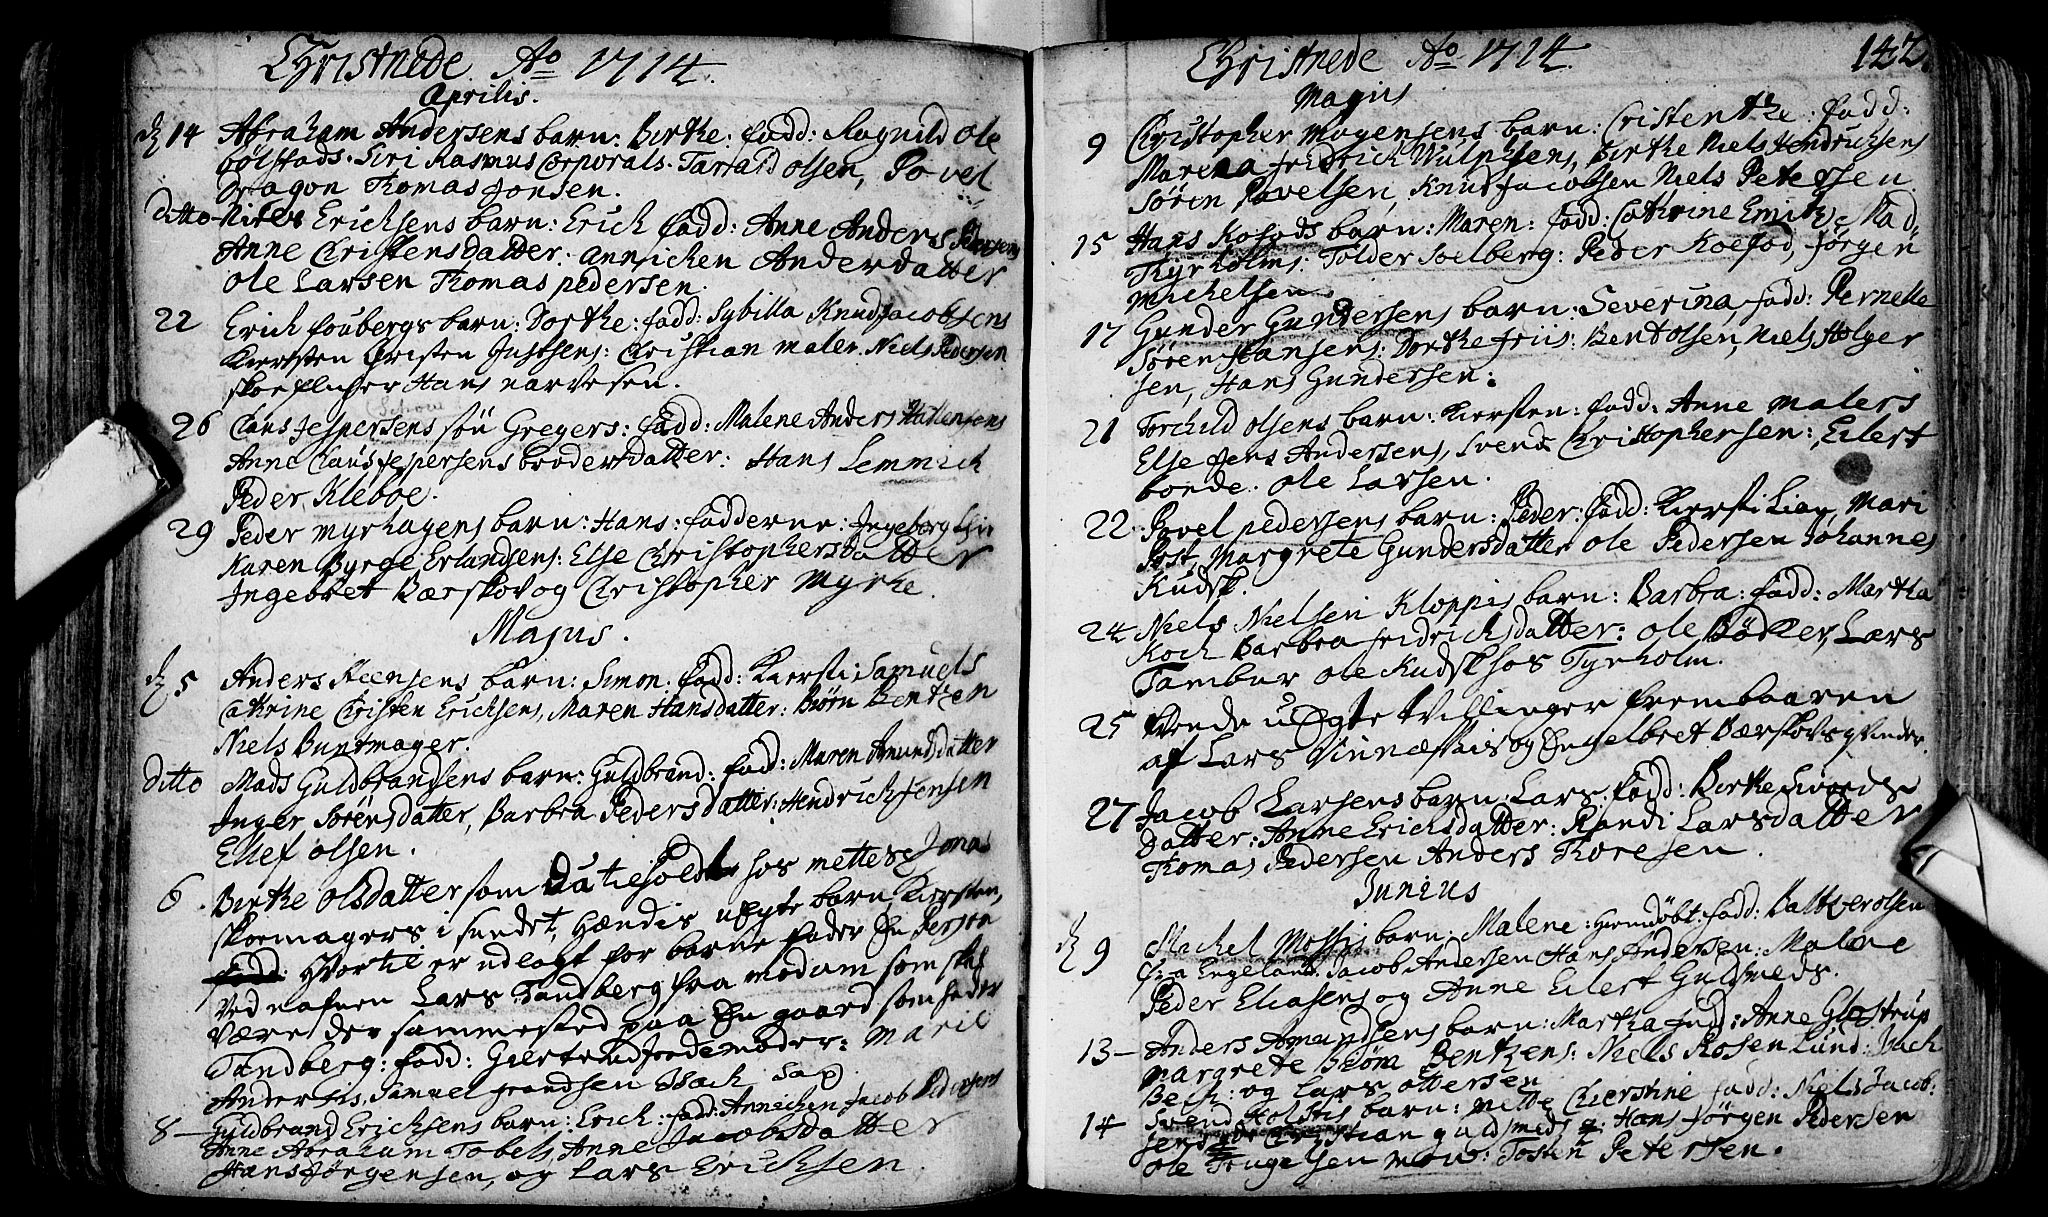 Christnede Ao 1714.
Aprilis.
d 14 Abraham Andersens barn: Birthe: fadd: Ragnild Ole
bølstads. Siri Rasmus Corporals. Tarrald olsen, Povel
Dragon Thomas Jonsen.
Ditto Ericksens barn: Erich fadd: Anne Anders Pedersens
Anne Christensdatter. annichen Andersdatter
Ole Larsen Thomas pedersen.
22 Erich foubergs barn: Dorthe: fadd: Sybilla Knud Jacobsens
Kiersten Christen Justsens: Christian maler. Niels Pedersen
skoeflicher Hans narvesen.
Schow
26 Claus Jespersens søn Gregers: fadd: Malene Anders
Anne Claus Jespersens broders datter: Hans Lemmich
Peder Kleboe.
29 Peder myrhagens barn: Hans: fadderne: Ingeborg
Karen Byrge Erlandsens: Else Christophersdatter
Ingebret Bærskov og Christopher Myrhe.
Majus.
d 5 Anders Reensens barn: Simon: fadd: Kiersti Samuels
Cathrine Christen Ericksens, Maren Hansdatter: Biørn Bentzen
Niels Buntmager.
Ditto Mads Guldbrandsens barn: Guldbrand: fadd: Maren Amundsdatter
Inger Sørensdatter, Barbra Pedersdatter: Hendrich Jensen
Ellef olsen.
6. Birthe Olsdatter som hos mettes Jonas
skoemagers i sundet, Hændis uægte barn Kiersten,
fadd: Hvortil er udlagt for barne fader En Person
ved nafnen Lars Tandberg fra modum som skal
være der sammested paa En gaard som heder
Tandberg: fadd: Giertrud Jordemoder: Marie
Anders Samuel frandsen Isach
8 – Guldbrand Ericksens barn: Erich: fadd: Annichen Jacob Pedersens
Anne Abraham Tobels, Anne Jacobsdatter
Hans Jørgensen, og Lars Ericksen.
Christnede Ao 1714.
142.
Majus
9 Christopher Mogensens barn: Cristenthe: fadd:
Marena fridrich Wulphsens, Birthe Niels Hendrichsens
Søren Povelsen, Knud Jacobsen Niels Petersen.
15 Hans Kofods barn: Maren: fadd: Cathrine Mad,
Thyrholms: Tolder Soelberg: Peder Koefod, Jørgen
Michelsen
17 Gunder Gundersens barn: Severina, fadd: Pernelle
Søren Hansens: Dorthe friis: Bent Olsen, Niels Holger
sen, Hans Gundersen:
21 Torchild olsens barn: Kiersten: fadd: Anne malers
Else Jens Andersens, Svend Christophersen: Eilert
bonde. ole Larsen.
22 Povel pedersens barn: Peder: fadd: Kiersti Lian, Mari
Post, Margrete Gundersdatter ole Pedersen Johannes
Kudsk.
24 Niels Nielsen Kloppis barn: Barbra: fadd: Martha
Koch Barbra fridrichsdatter: ole Bødker, Lars
Tambur ole Kudsk hos Tyrholm.
25 uægte tvillinger frembaaren
af Lars og Engelbret Bærskovs qvinder.
27 Jacob Larsens barn: Lars: fadd: Birthe Siverds
datter: Anne Ericksdatter: Randi Larsdatter
Thomas Pedersen Anders Thoresen.
Junius
d 9 Michel Mossis barn: Malene: hiemdøbt: fadd: Baltzer olsen
Engeland. Jacob Andersen Hans Andersen: Malene
Peder Eliasens og Anne Eilert Guldsmeds.
13 – Anders Amundsens barn: Martha fadd: Anne Glostrup
Margrete Biørn Bentzens: Niels Rosenlund:
Bech: og Lars ottersen
14 Svend Holstis barn: mette Chierstine fadd: Niels Jacob:
sen Christian guldsmed: Hans Jørgen Pedersen
ole Trugelsen Tosten Petersen.